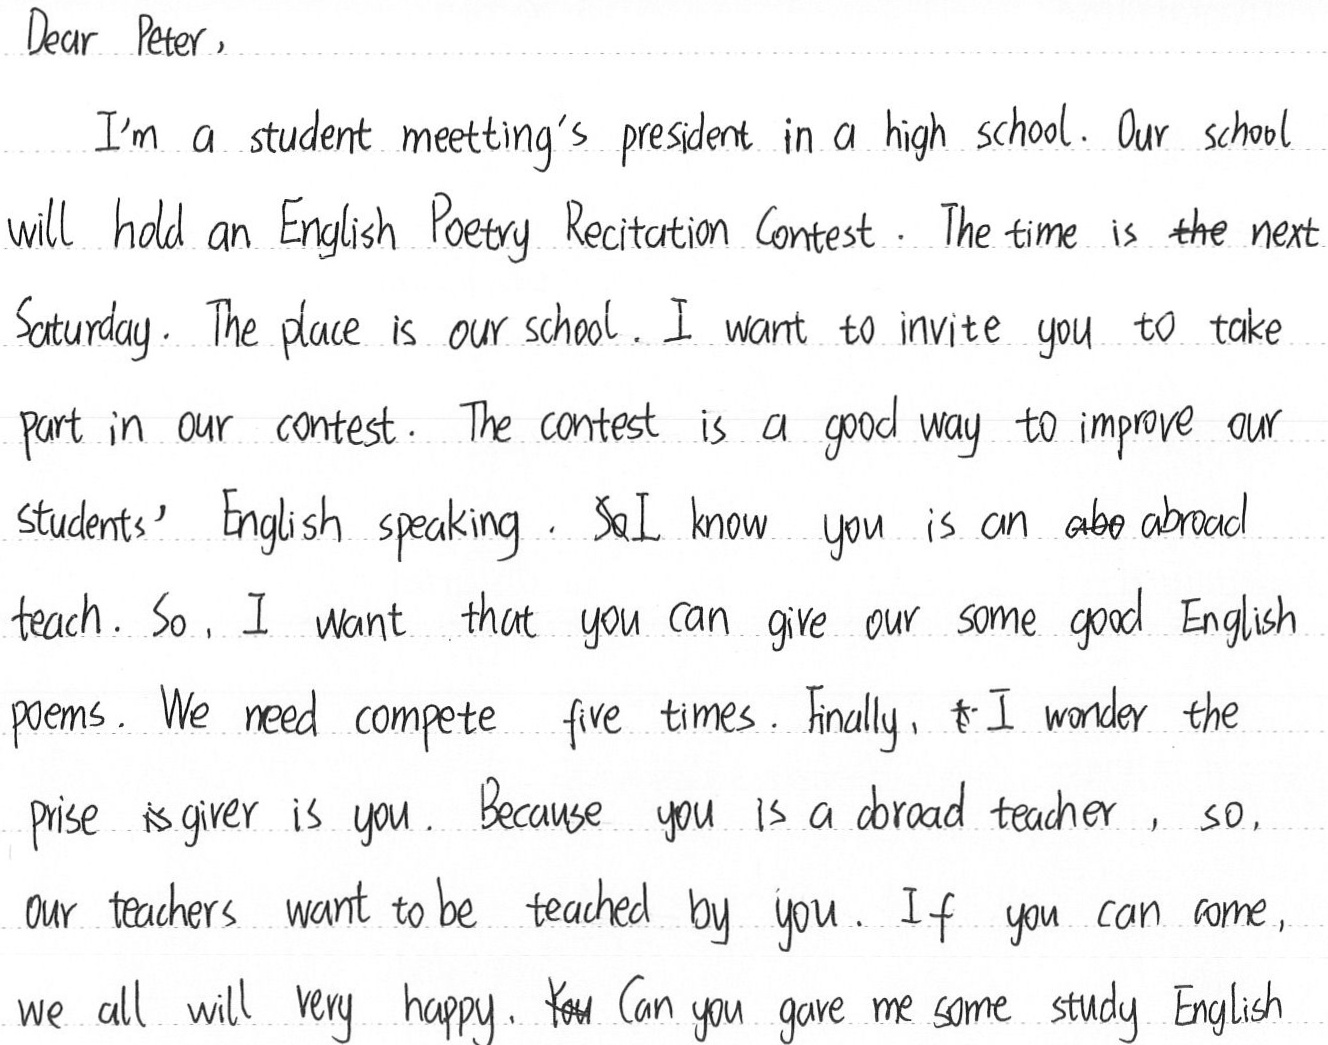 Dear Peter,
I'm a student meetting's president in a high school. Our school
will hold an English Poetry Recitation Contest. The time is the next
Saturday. The place is our school. I want to invite you to take
part in our contest. The contest is a good way to improve our
students' English speaking. So I know you is an abo abroad
teach. So, I want that you can give our some good English
poems. We need compete five times. Finally, t I wonder the
prise is giver is you. Because you is a abroad teacher, so,
our teachers want to be teached by you. If you can come,
we all will very happy. You Can you gave me some study English